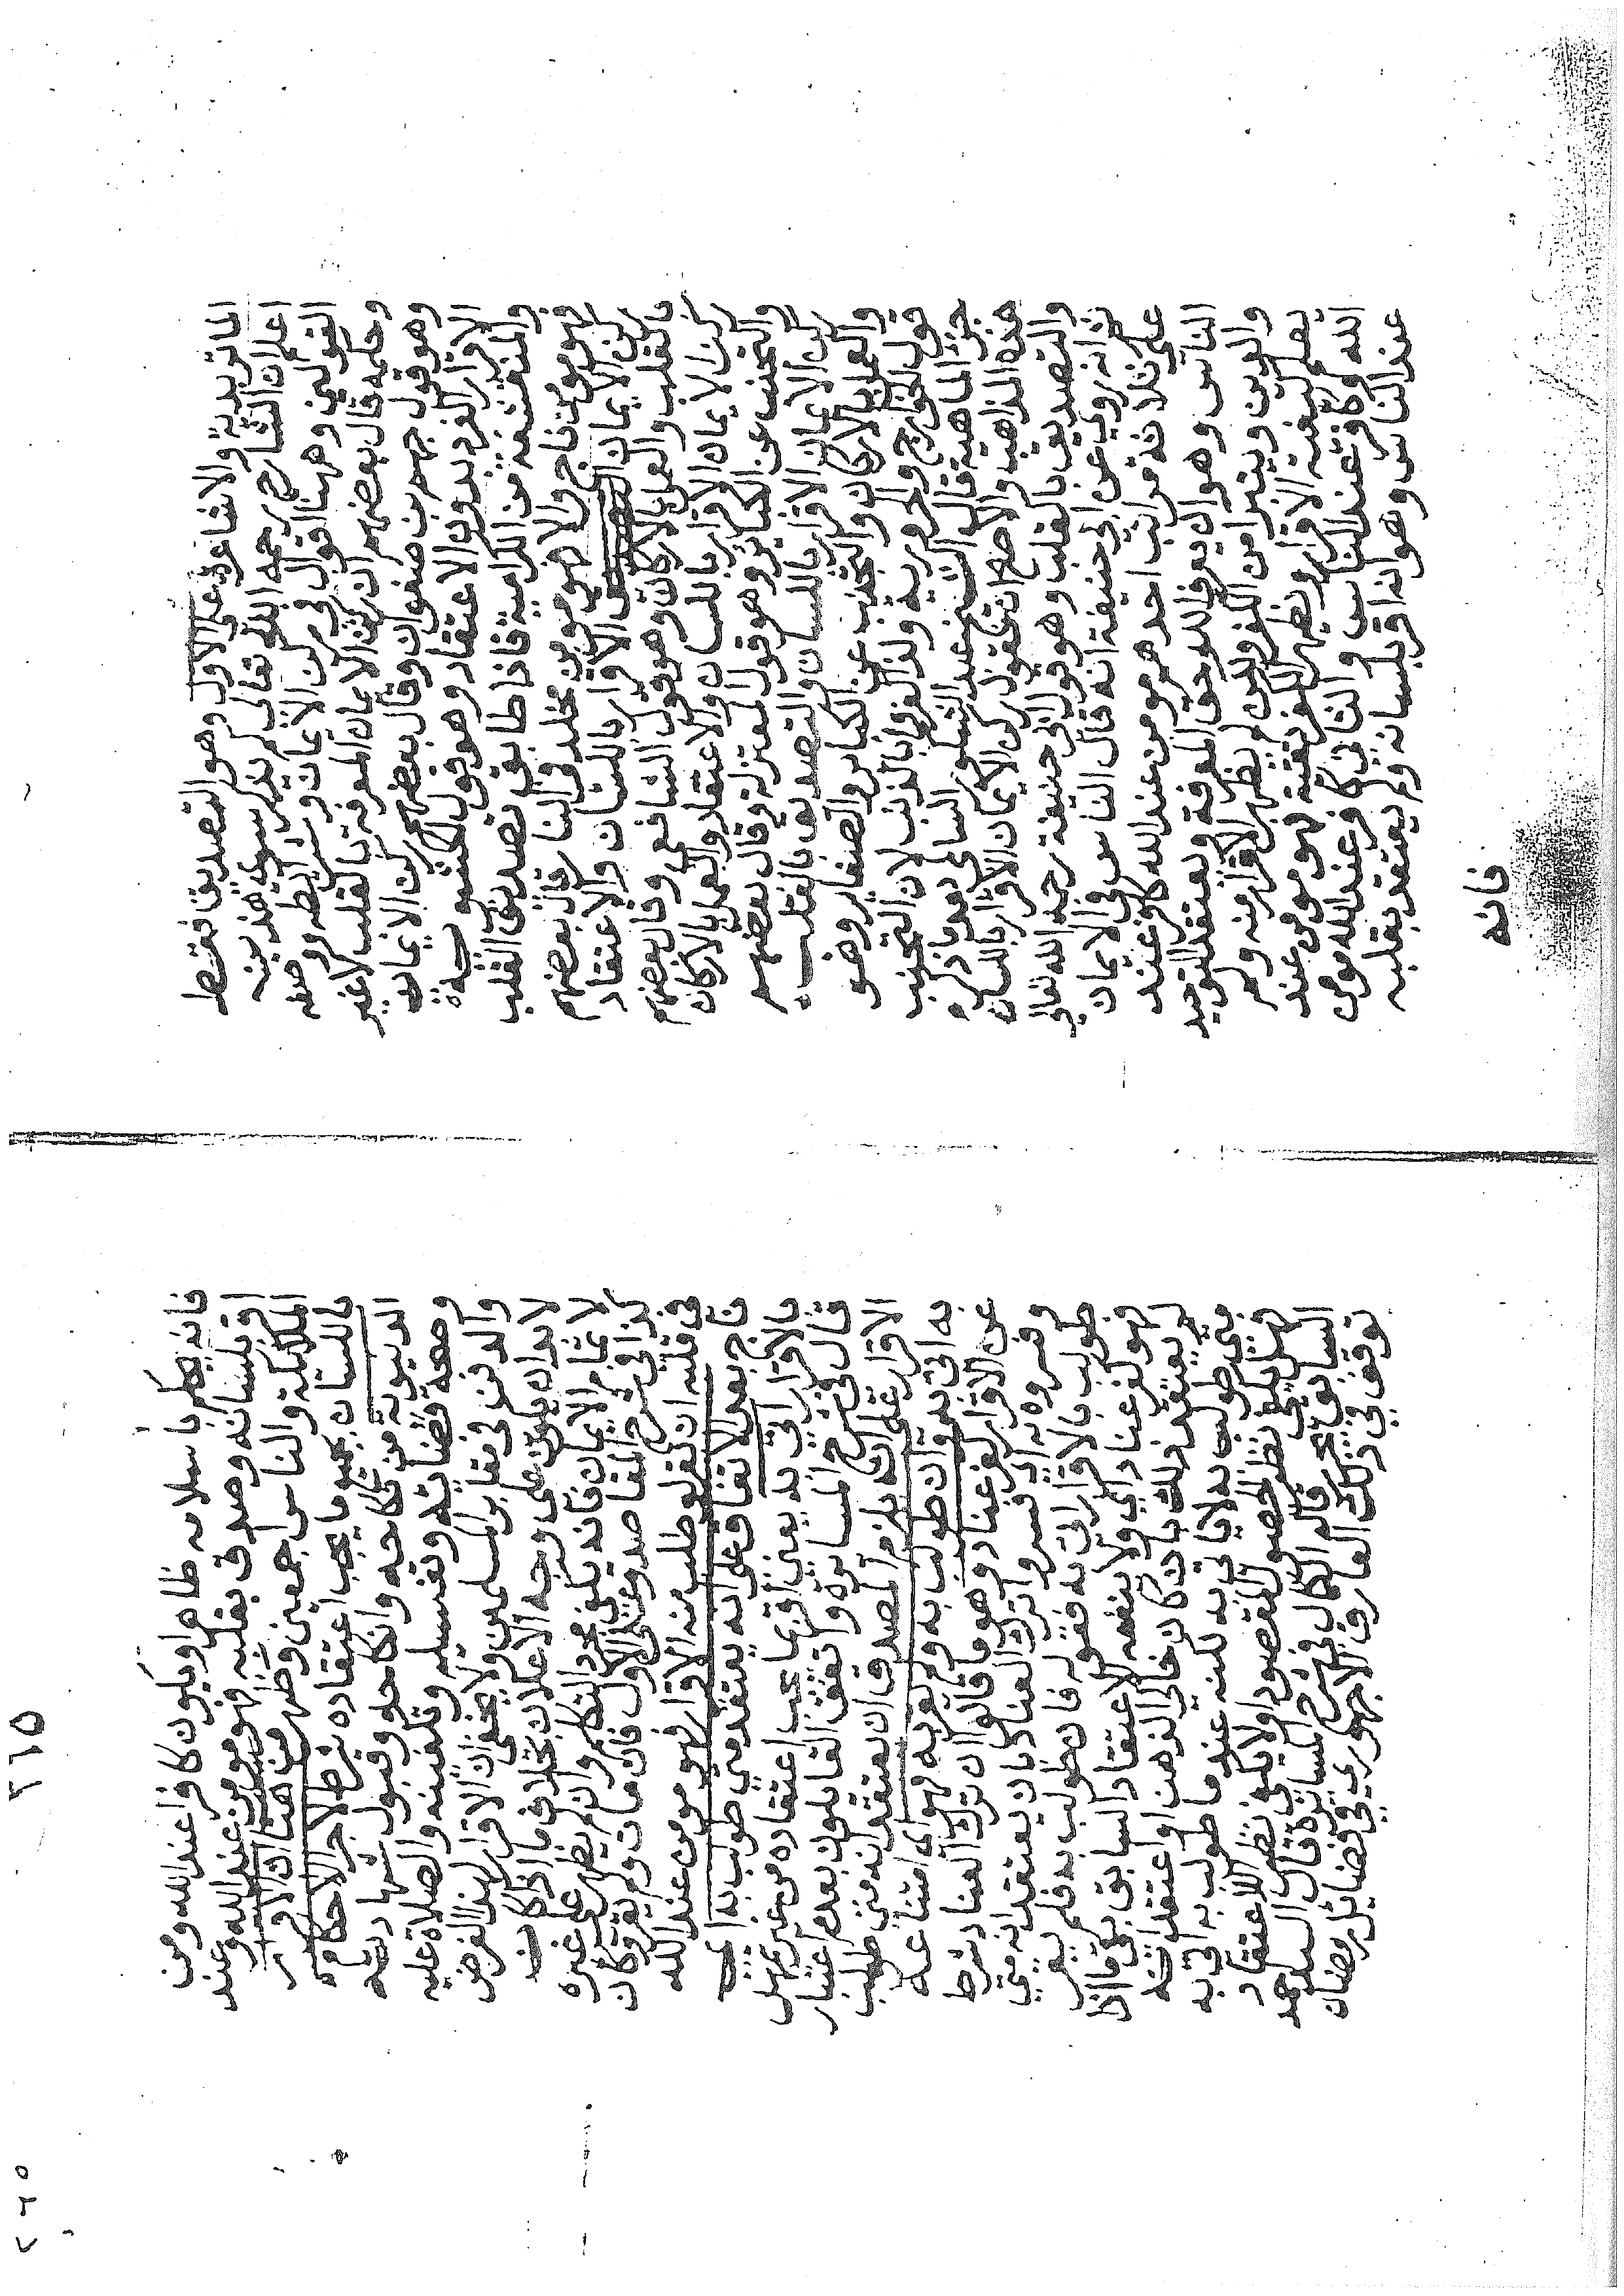 الماتريدية والاشاعرة على الاول وهو التصديق فقط
اعلم ان الشارح رحمه الله تعالى لم يذكر سوى هذين
القولين وههنا اقوال في ركن الايمان وشرايطه ووصفه
وحكمه قال بعضهم ان ركن الايمان المعرفة بالقلب لا غير
وهو قول جهم بن صفوان وقال بعضهم ركن الايمان
الاقرار الفرد بدون الاعتقاد وهو قول الحشوية
والمتقشفة من الكرامية فاذا طابق تصديق القلب
فهو مومن ناج والا فهو مومن مخلد في النار قال بعضهم
ركن الايمان الاقرار باللسان والاعتقاد
بالقلب والعمل بالاركان وهو قول الشافعي وقال بعضهم
ركن الايمان الاقرار باللسان والاعتقاد والعمل بالاركان
والتجنب عن الكباير وهو قول المعتزلة وقال بعضهم
ركن الايمان الاقرار باللسان والتصديق بالقلب
والعمل بالاركان والتجنب عن الكباير والصغاير وهو
قول الخوارج والحرورية ولذا كفروا بالذنب لان التجنب
جزء الماهية قال الشيخ عبد الشكور السالمي بعد ما ذكر
هذه المذاهب والاصح ان نقول ركن الايمان الاقرار باللسان
والتصديق بالقلب وهو قول ابي حنيفة رحمه الله تعالى
ثم انه روي عن ابي حنيفة انه قال الناس في الايمان
على ثلاثة مراتب احدهم مومن عند الله كافر عند
الناس وهو ان يعرف الله حق المعرفة ويعتقد التوحيد
والدين ويتبرا من الكفر ولكن لم يظهر الاقرار منه ولم
يعلم كيفية الاقرار ويظهر الكفر تقية فهو مومن عند
الله وكافر عند الناس والثاني كافر عند الله مومن
عند الناس وهو انه اقر بلسانه ولم يعتقد بقلبه
فانه
٢٦٥
فانه يحكم باسلامه ظاهرا ويكون كافرا عند الله ومن
اقر بلسانه وصدق بقلبه فهو مومن عند الله وعند
الملائكة والناس اجمعين وظهر من هنا ان الاقرار
باللسان بجميع ما يجب اعتقاده شرط لاجر الاحكام
الدنيوية من نكاحه وانكاحه وقبول شهادته
وصحة قضائه وتغسيله وتكفينه والصلاة عليه
والدفن في مقابر المسلمين ولا يخفى ان الاقرار لهذا الغرض
لا بد وان يكون على وجه الاعلان بخلاف ما اذا كان
لاتمام الايمان فانه يكفي مجرد التكلم وان لم يظهر على غيره
كذا في شرح المقاصد وعلى الاول فان مات ولم يقر وكان
في قلبه ان لو طلب منه الاقرار فهو مومن عند الله
ناج بعد الاتفاق على انه يعتقد متى طولب به
بالاقرار اتى به يعني اقر بما يجب اعتقاده من غير مهل
قال في شرح المسايرة واتفق القايلون بعدم اعتبار
الاقرار على انه يلزم المصدق ان يعتقد انه متى طلب
به اتى به وان طولب به ولم يقر به فهو اي امتناعه
عن الاقرار كفر عناد وهو ما قالوا ان ترك العناد شرط
وفسروه به اي فسروا ترك العناد بان يعتقد انه متى
طولب بالاقرار اتى به فقوله فان طولب به فلم يقر
فهو كفر عناد اي ولا ينفعه الاعتقاد السابق بقي ما اذا
لم يعتقد ذلك بان كان خالي الذهن او اعتقد انه
متى طولب به لا ياتي به لكنه عند ما طولب به اتى به
فهل يكفي نظر الحصول المقصود او لا يكفي نظر الاعتقاد
السابق يحرر قاله الكمال في شرح المسايرة قال السيد احمد
توقف في ذلك العارف الاجهوري في فضايل رمضان
٢٦٥